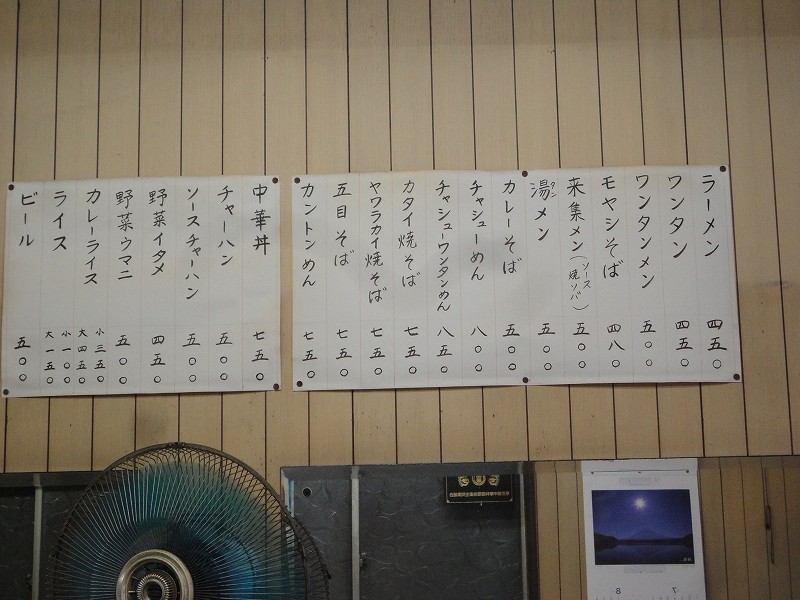 ラーメン 四五〇
ワンタン 四五〇
ワンタンメン 五〇〇
モヤシそば 四八〇
来集メン(ソース焼ソバ) 五〇〇
湯メン タン 五〇〇
カレーそば 五〇〇
チャシューめん 八〇〇
チャシューワンタンめん 八五〇
カタイ焼そば 七五〇
ヤワラカイ焼そば 七五〇
五目そば 七五〇
カントンめん 七五〇
中華丼 七五〇
チャーハン 五〇〇
ソースチャーハン 五〇〇
野菜イタメ 四五〇
野菜ウマニ 五〇〇
カレーライス 小三五〇 大四五〇
ライス 小一〇〇 大一五〇
ビール 五〇〇
8 7